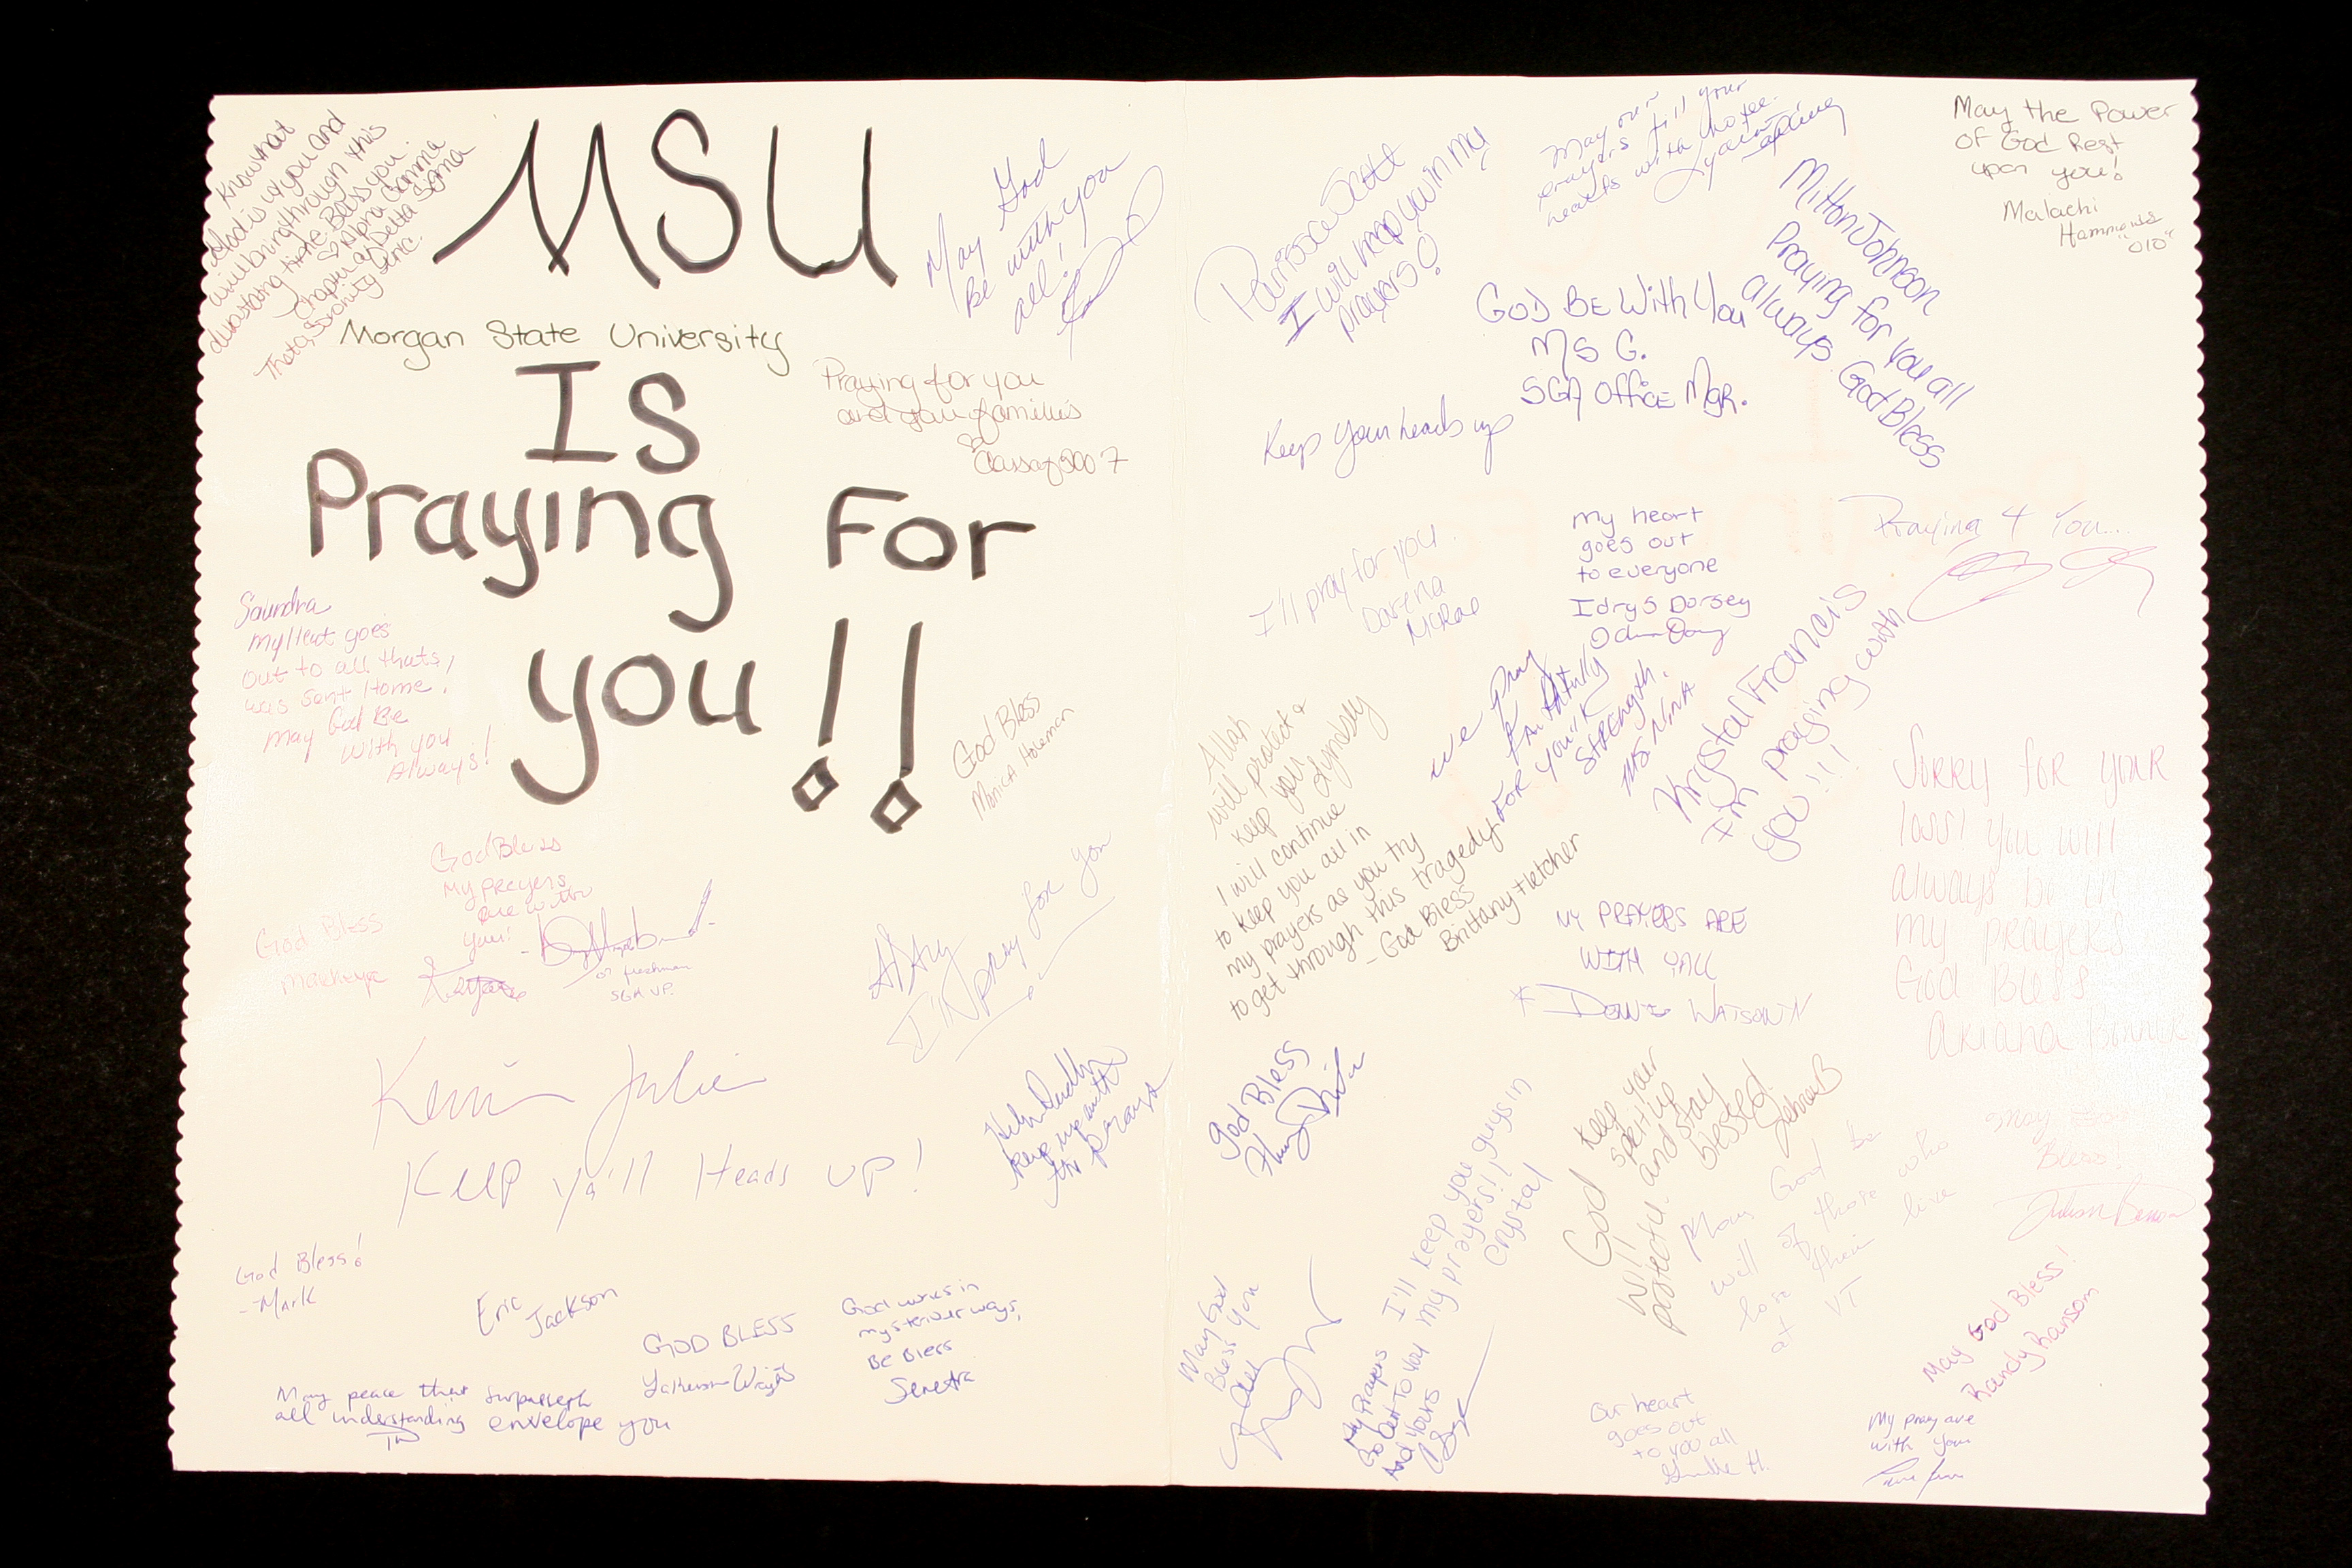 MSU
Morgan State University
Is
Praying For
you!!
Know that
God is w/ you and
will bring through this
devastating time. Bless you.
Alpha Gamma
Chapter of Delta Sigma
Theta Sorority Inc.
May God
Be with you
all!
Praying for you
and your families
Class of 2007
Saundra
my Heart goes
out to all thats
was sent Home.
May God Be
With you
Always!
God Bless
Monica Holeman
God Bless
My prayers
are with
you!
God Bless
07 freshman
SGA VP.
I'll pray for you
Kevin Julien
Keep ya'll Heads up!
keep
God Bless!
- Mark
Eric
Jackson
GOD BLESS
God works in
mysterious ways,
Be Bless
Senetra
May peace that surpasseth
all understanding envelope you
I will keep you in my
prayers
May our
prayers fill your
hearts with hope.
May the Power
of God Rest
upon you!
Malachi
Hammonds
"010"
Milton Johnson
Praying for you all
always. God Bless
GOD BE With You
MS G.
SGA OfficE MgR.
Keep your heads up
I'll pray for you.
Darena
McRae
my heart
goes out
to everyone
Idrys Dorsey
Praying 4 You....
we pray
faithfully
FOR YOU"K
STRENgth.
MS. NINA
Krystal Francis
I'm praying with
you!!!
Allah
will protect &
keep you
I will continue
to keep you all in
my prayers as you try
to get through this tragedy
- God Bless
Brittany Fletcher
Sorry for your
loss! You will
always be in
my prayers
God Bless
Ariana
MY PRAYERS ARE
WITH YALL
WATSON
God Bless
Keep your
spirit up
and stay
blessed.
God
will
protect u.
I'll keep you guys in
my prayers!!
Crystal
May God be
will of those who
lose their live
at VT
May God
Bless!
Julian Benson
May God
Bless you
all
My Prayers
Go out To you
And Yours
May God Bless!
Randy Ransom
Our heart
goes out
to you all
My pray are
with you